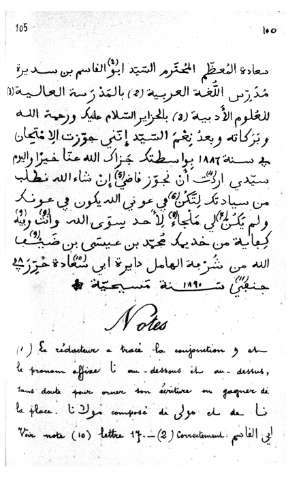 105 ١٠٥
سعادة المعظّم المحترم السيّد ابو (2) القاسم بن سديرة
مدرّس اللّغة العربية (3) بالمدرسة العالية (3)
للعلوم الأدبية (3) بالجزاير السلام عليك ورحمة الله
وبركاته وبعد نعم السيّد إنّني جوّزت الامتحان
في سنة ١٨٨٦ بواسطتك جزاك الله عنّا خيرا واليوم
سيّدي اردت أن نجوّز قاضي (5) إن شاء الله نطلب
من سيادتك لتكن (6) في عوني الله يكون في عونك
ولم تكن لي ملجاء لأحد يسوى الله وانت وبيه
كفاية من خديمك محمّد بن عيسى بن ضيف
الله من شرفة الهامل دايرة ابي سعادة حرّر في ٢٨
سنة ١٨٩٠ مسيحيّة
Notes
(1) Le rédacteur a tracé la conjonction و et
le pronom affixe نا au-dessous et au-dessus,
sans doute pour orner son écriture ou gagner de
la place. مولانا composé de مولى et de نا
Voir note (10) lettre 17. — (2) Correctement ابي القاسم.